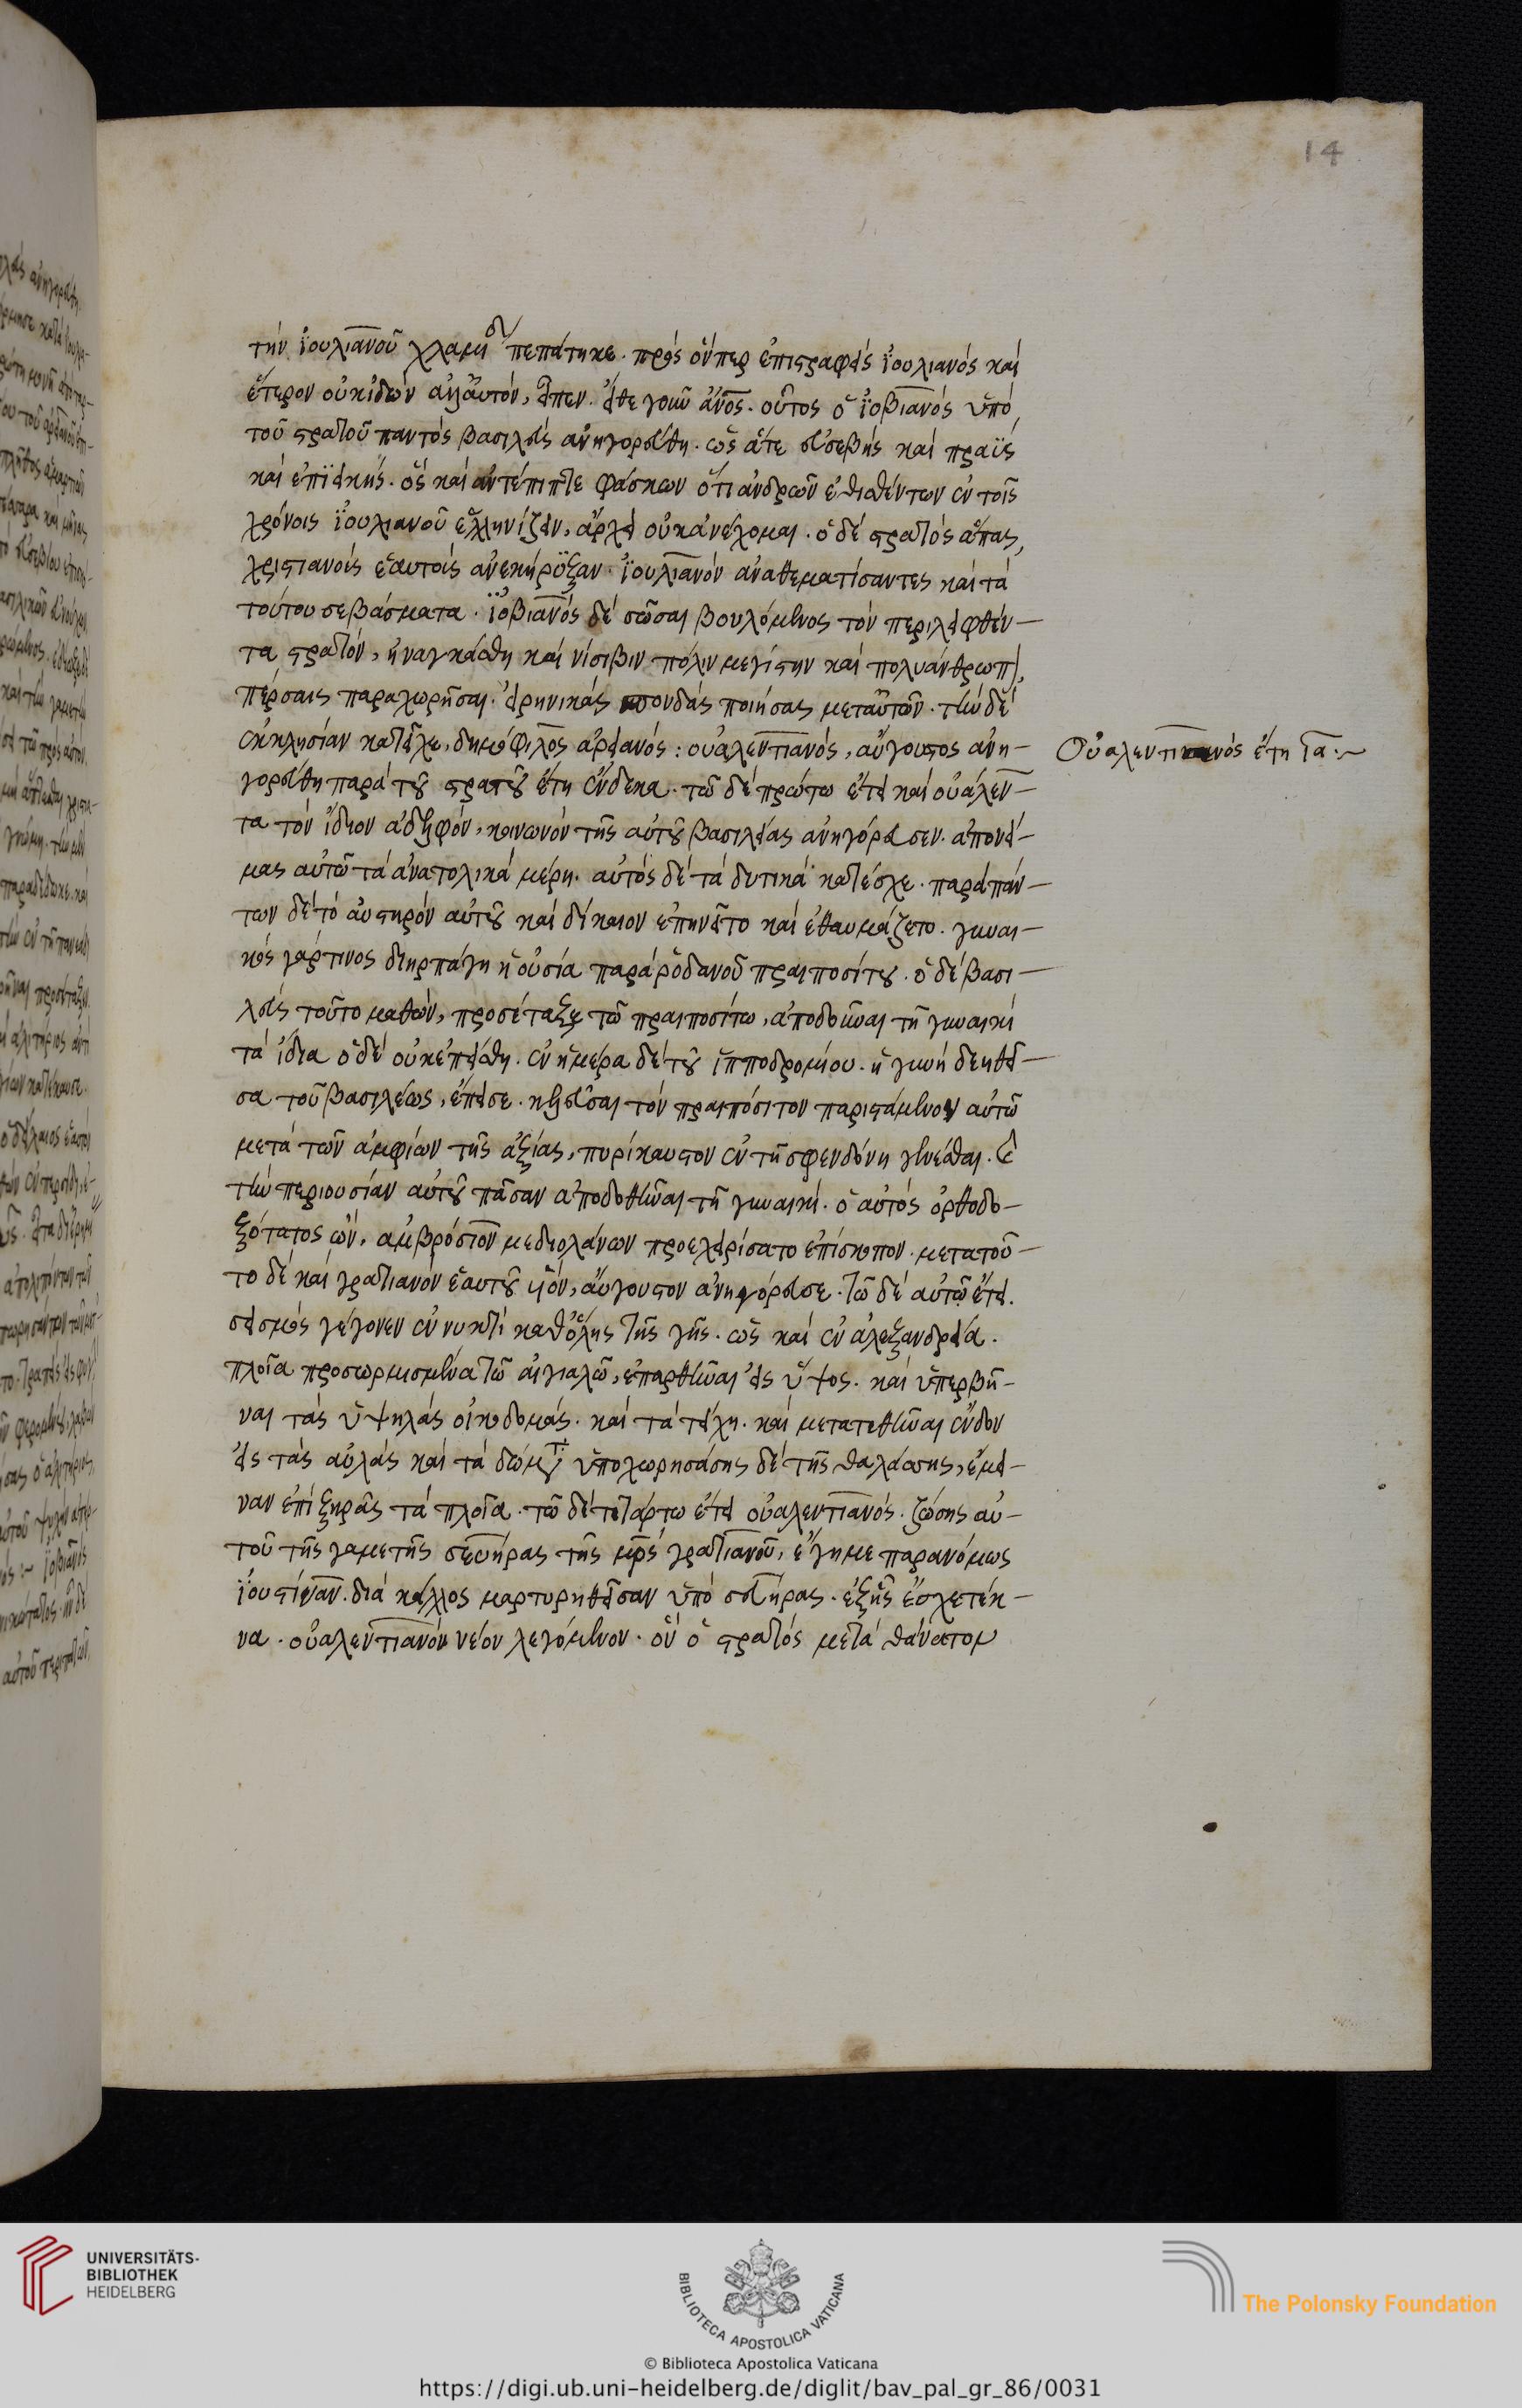 14
τὴν ἰουλιανοῦ χλαμύδ πεπάτηκε. πρὸς ὅνπερ ἐπιστραφεὶς ἰουλιανὸς καὶ
ἕτερον οὐκ ἰδὼν εἶπεν. εἴθε γοῦν ἄν̅ος. οὗτος ὁ ἰοβιανὸς ὑπὸ
τοῦ στρατοῦ παντὸς βασιλεὺς ἀνηγορεύθη. ὡς ἅτε εὐσεβὴς καὶ πραῢς
καὶ ἐπιεικής. ὃς καὶ ἀντέπιπτε φάσκων ὅτι ἀνδρῶν ἐθισθέντων ἐν τοῖς
χρόνοις ἰουλιανοῦ ἑλληνίζειν, ἄρχειν οὐκ ἀνέχομαι. ὁ δὲ στρατὸς ἅπας,
χριστιανοὺς ἑαυτοὺς ἀνεκήρυξαν. ἰουλιανὸν ἀναθεματίσαντες καὶ τὰ
τούτου σεβάσματα. ἰοβιανὸς δὲ σῶσαι βουλόμενος τὸν περιλειφθέν-
τα στρατόν, ἠναγκάσθη καὶ νίσιβιν πόλιν μεγίστην καὶ πολυάνθρωπ
πέρσαις παραχωρῆσαι. εἰρηνικὰς σπονδὰς ποιήσας μεταὐτῶν. τὴν δὲ
ἐκκλησίαν κατεῖχε, δημόφιλος ἀρειανός: οὐαλεντιανὸς, αὔγουστος ἀνη-
γορεύθη παρὰ τοῦ στρατοῦ ἔτη ἕνδεκα. τῶ δὲ πρώτω ἔτει καὶ οὐάλεν-
τα τὸν ἴδιον ἀδελφόν, κοινωνὸν τῆς αὐτοῦ βασιλείας ἀνηγόρευσεν. ἀπονεί-
μας αὐτῶ τὰ ἀνατολικὰ μέρη. αὐτὸς δὲ τὰ δυτικὰ κατέσχε. παρὰ πάν-
των δὲ τὸ αὐστηρὸν αὐτοῦ καὶ δίκαιον ἐπηνεῖτο καὶ ἐθαυμάζετο. γυναι-
κὸς γάρ τινος διηρπάγη ἡ οὐσία παρὰ ῥοδανοῦ πραιποσίτου. ὁ δὲ βασι-
λεὺς τοῦτο μαθών, προσέταξε τῶ πραιποσίτω, ἀποδοῦναι τῆ γυναικὶ
τὰ ἴδια ὁ δὲ οὐκ ἐπείσθη. ἐν ἡμέρα δὲ τοῦ ἱπποδρομίου. ἡ γυνὴ δεηθεῖ-
σα τοῦ βασιλέως, ἔπεισε. κελεῦσαι τὸν πραιπόσιτον παριστάμενον αὐτῶ
μετὰ τῶν ἀμφίων τῆς ἀξίας, πυρίκαυστον ἐν τῆ σφενδόνη γενέσθαι. καὶ
τὴν περιουσίαν αὐτοῦ πᾶσαν ἀποδοθῆναι τῆ γυναικί. ὁ αὐτὸς ὀρθοδο-
ξότατος ὤν. ἀμβρόσιον μεδιολάνων προεχειρίσατο ἐπίσκοπον. μετὰ τοῦ-
το δὲ καὶ γρατιανὸν ἑαυτοῦ υἱόν, αὔγουστον ἀνηγόρευσε. τῶ δὲ αὐτῶ ἔτει.
σεισμὸς γέγονεν ἐν νυκτὶ καθόλης τῆς γῆς. ὡς καὶ ἐν ἀλεξανδρεία.
πλοῖα προσωρμισμένα τῶ αἰγιαλῶ, ἐπαρθῆναι εἰς ὕψος. καὶ ὑπερβῆ-
ναι τὰς ὑψηλὰς οἰκοδομάς. καὶ τὰ τείχη. καὶ μετατεθῆναι ἔνδον
εἰς τὰς αὐλὰς καὶ τὰ δώματ ὑποχωρησάσης δὲ τῆς θαλάσσης, ἔμει-
ναν ἐπὶ ξηρᾶς τὰ πλοῖα. τῶ δὲ τετάρτω ἔτει οὐαλεντιανὸς. ζώσης αὐ-
τοῦ τῆς γαμετῆς σευήρας τῆς μρ̅ς γρατιανοῦ, ἔγημε παρανόμως
ἰουστίναν. διὰ κάλλος μαρτυρηθεῖσαν ὑπὸ σευήρας. ἐξ ἧς ἔσχε τέκ-
να. οὐαλεντιανὸν νέον λεγόμενον. ὃν ὁ στρατὸς μετὰ θάνατον
Οὐαλεντιανὸς ἔτη ια:~
UNIVERSITÄTS-
BIBLIOTHEK
HEIDELBERG
BIBLIOTECA APOSTOLICA VATICANA
The Polonsky Foundation
© Biblioteca Apostolica Vaticana
https://digi.ub.uni-heidelberg.de/diglit/bav_pal_gr_86/0031